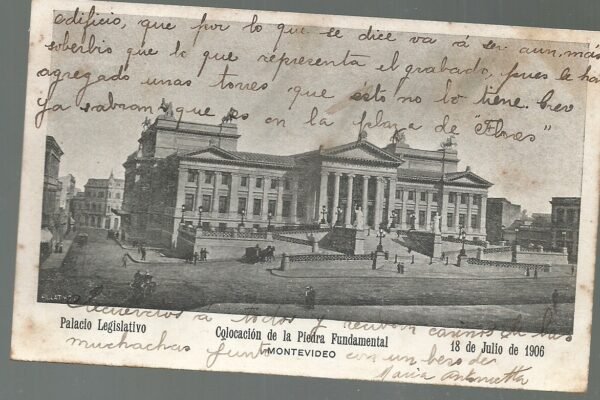 edificio, que por lo que se dice va á ser aun, más
soberbio que lo que representa el grabado, pues le han
agregado unas torres que ésto no lo tiene. Creo
ya sabran que es en la plaza de "Flores"
Recuerdos a todos y reciban cariños de las
muchachas junto con un beso de
Maria Antonietta
Palacio Legislativo
Colocación de la Piedra Fundamental
MONTEVIDEO
18 de Julio de 1906